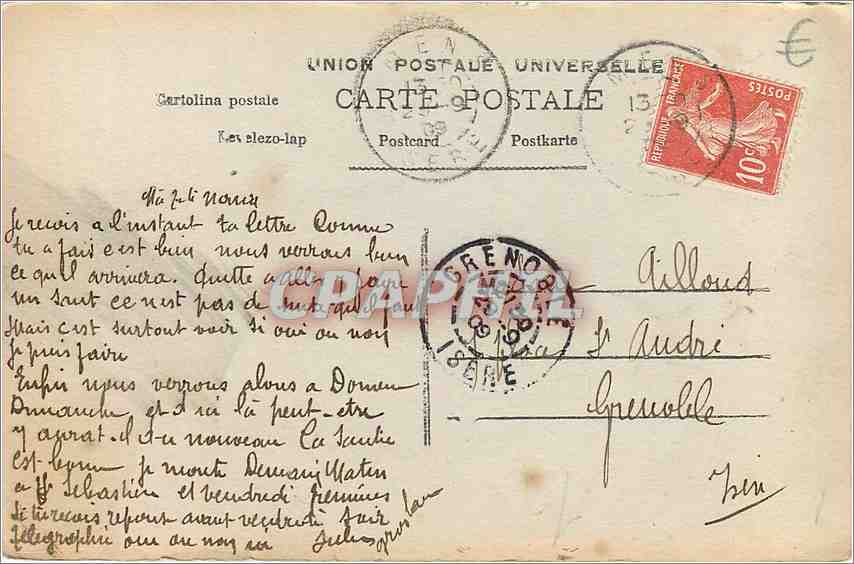 UNION POSTALE UNIVERSELLE
Cartolina postale
CARTE POSTALE
Levelezo-lap
Postcard
Postkarte
REPUBLIQUE FRANÇAISE
POSTES
10c
€
GRENOBLE
ISERE
CPAPHIL
Ma petite
Je reçois a l'instant ta lettre Comme
tu a fais c'est bien nous verrons bien
ce qu'il arrivera. Quitte a aller
un saut ce n'est pas de qu'il faut
Mais c'est surtout voir si oui ou non
Je puis faire
Enfin nous verrons alons a Domene
Dimanche et d'ici là peut-etre
y aurat-il du nouveau La Santée
est bonne je monte Demain Matin
a St Sebastien et vendredi
Si tu reçois reponse avant vendredi soir
telegraphie oui ou non Jules
Ailloud
St André
Grenoble
Isère